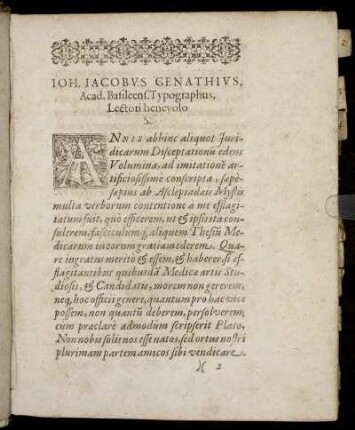 IOH. IACOBVS GENATHIVS,
Acad. Basileens. Typographus,
Lectori benevolo
S.
ANNIS abhinc aliquot Juri-
dicarum Disceptationū edens
Volumina, ad imitationē ar-
tificiosissimè conscripta, sæpè-
sepius ab Asclepiadeis Mystis
multa verborum contentione a me efflagi-
tatum fuit, quò efficerem, ut & ipsorū ita con-
sulerem, fasciculumq; aliquem Thesiū Me-
dicarum in eorum gratiam ederem. Qua-
re ingratus meritò & essem, & haberer, si ef-
flagitantibus quibusdā Medicæ artis Stu-
diosis, & Candidatis, morem non gererem,
neq; hoc officii genere, quantum pro hac vice
possem, non quantū deberem, persolverem,
cum præclarè admodùm scripserit Plato,
Non nobis solis nos esse natos, sed ortus nostri
plurimam partem amicos sibi vendicare.
)( 2